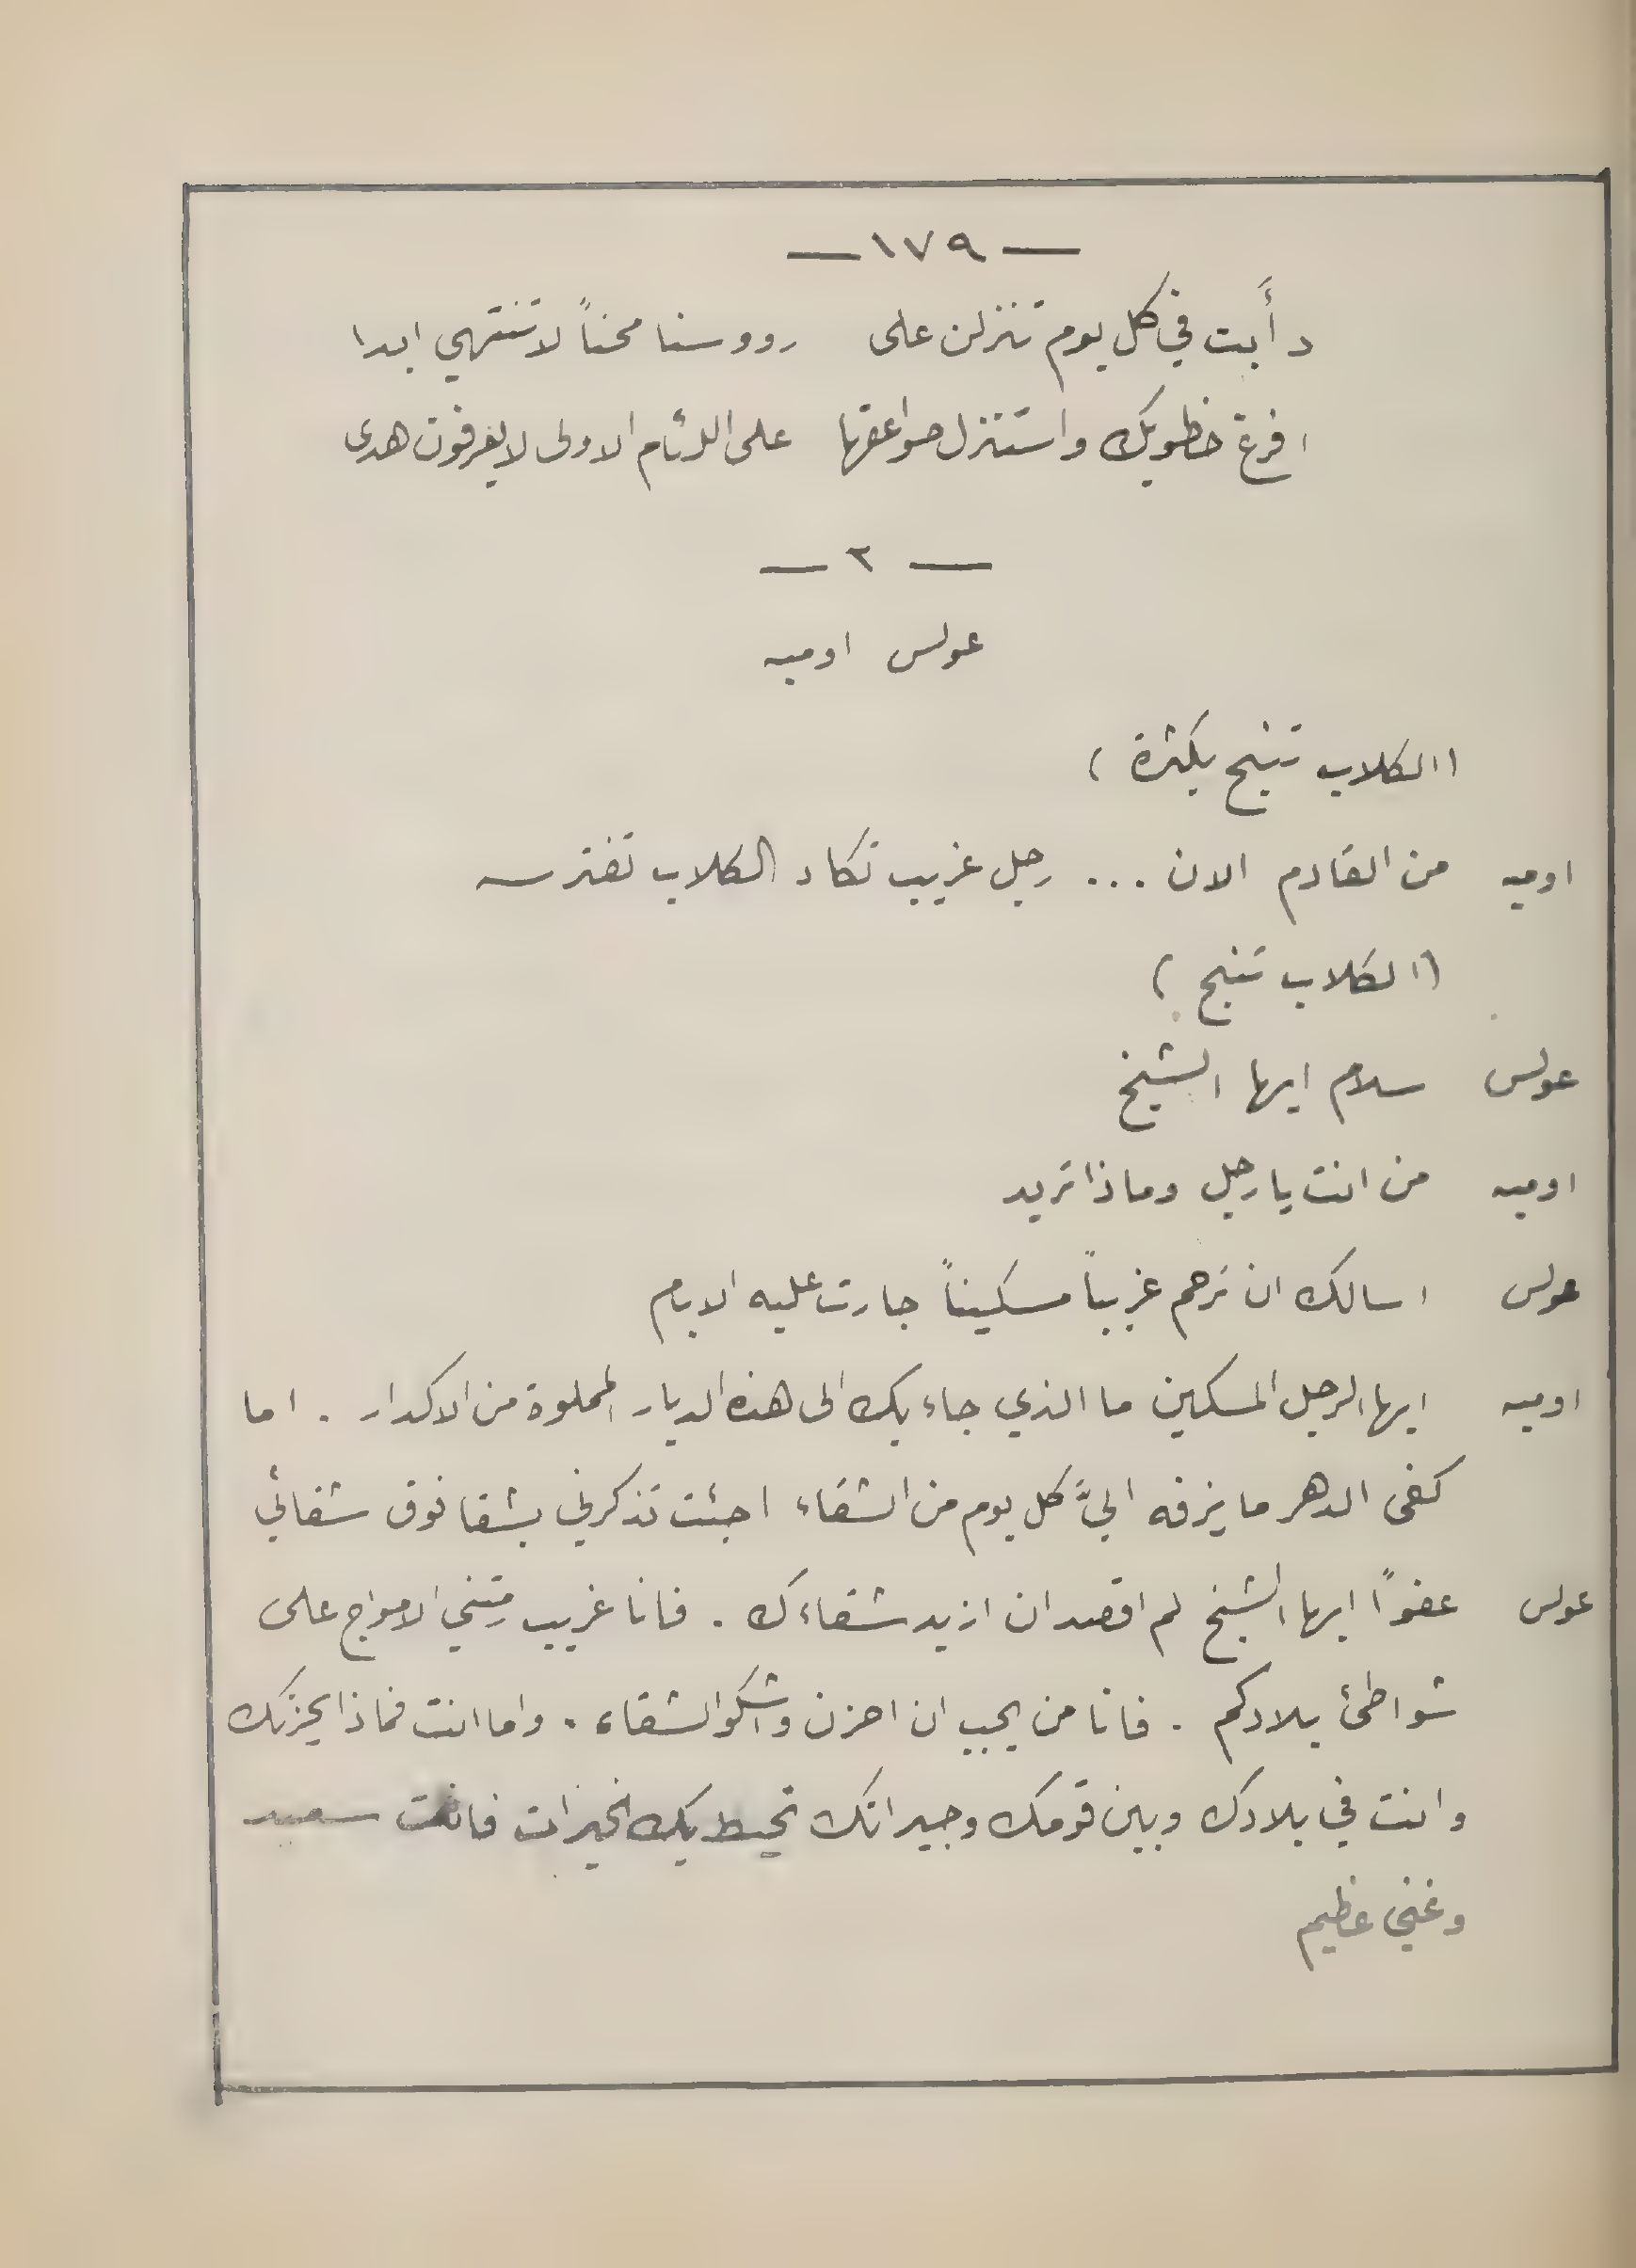 — ١٧٩ —
دأَبت في كل يوم تنزلن على رووسنا محناً لا تنتهي ابدا
افرغ خطوبك واستنزل صواعقها على اللئام الاولى لا يعرفون هدى
— ٢ —
عولس اوميه
(الكلاب تنبح بكثرة)
اوميه من القادم الان ... رجل غريب تكاد الكلاب تفترسه
(الكلاب تنبح)
عولس سلام ايها الشيخ
اوميه من انت يا رجل وماذا تريد
عولس اسالك ان ترحم غريباً مسكيناً جارت عليه الايام
اوميه ايها الرجل المسكين ما الذي جاء بك الى هذه الديار المملوة من الاكدار . اما
كفى الدهر ما يزفه اليَّ كل يوم من الشقاء اجئت تذكرني بشقا فوق شقائي
عولس عفواً ايها الشيخ لم اقصد ان ازيد شقاءك . فانا غريب رمتني الامواج على
شواطئ بلادكم . فانا من يجب ان احزن واشكو الشقاء . واما انت فماذا يحزنك
وانت في بلادك وبين قومك وجيرانك تحيط بك الخيرات فانت سعيد
وغني عظيم